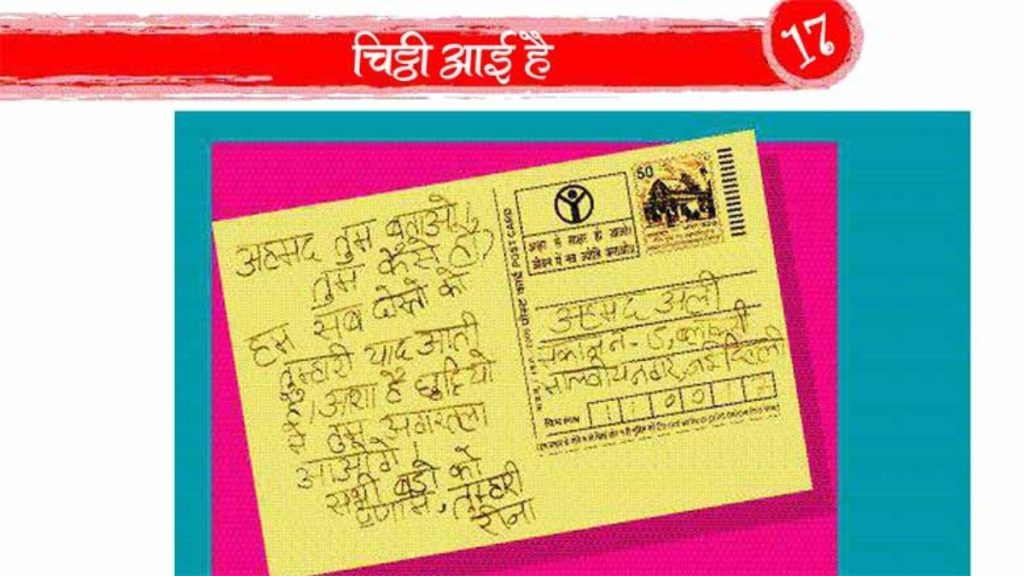 चिट्ठी आई है
17
अहमद तुम बताओ!
तुम कैसे हो?
हम सब दोस्तों को
तुम्हारी याद आती
है। आशा है छुट्टियों
में तुम अगरतला
आओगे।
सभी बड़ों को
प्रणाम, तुम्हारी
रीना
पोस्ट कार्ड POST CARD
50
अहमद अली
मकान न-5,
मालवीय नगर, नई दिल्ली
पिन PIN
110017